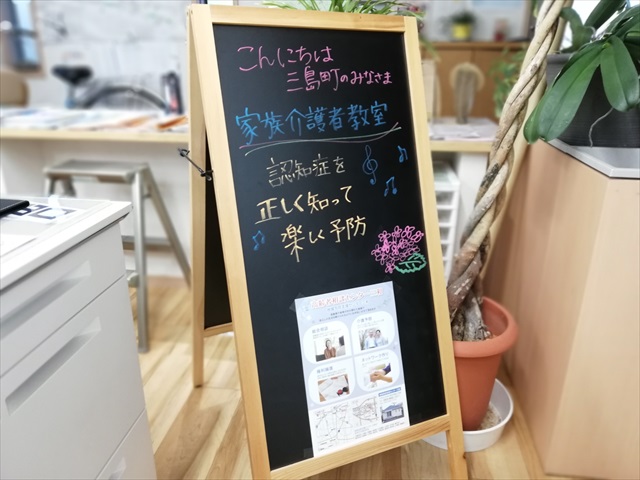 こんにちは
三島町のみなさま
家族介護者教室
認知症を
正しく知って
楽しく予防